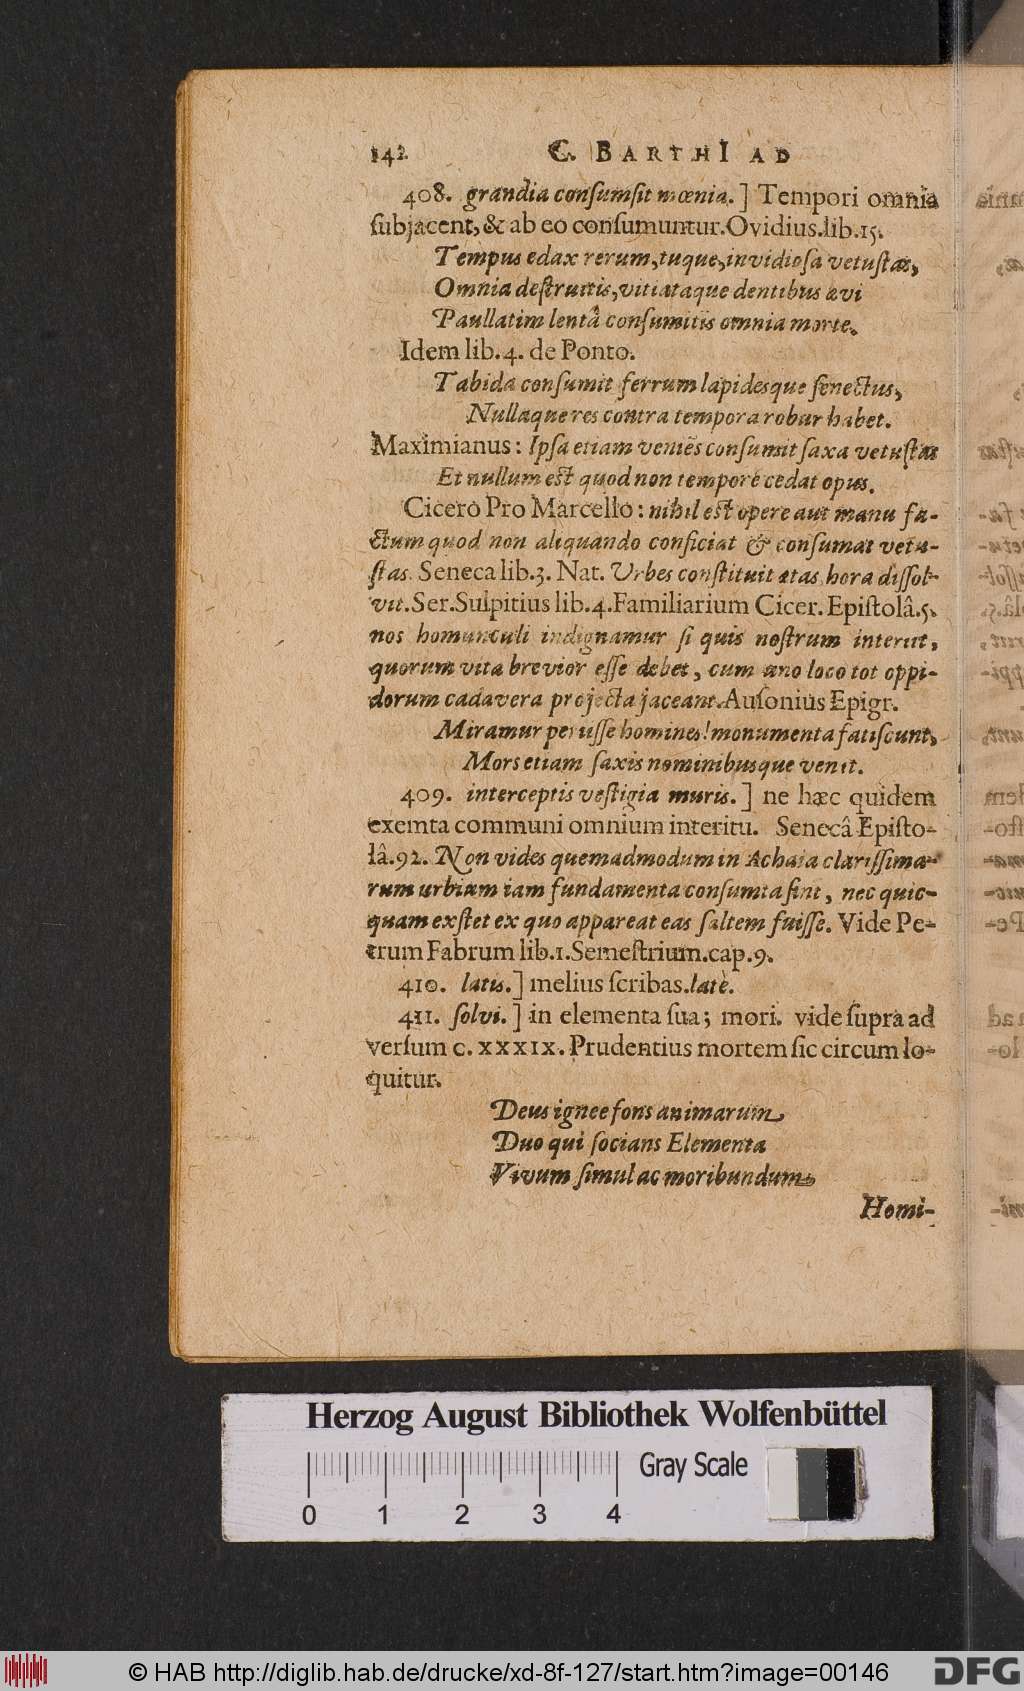 142. C. BARTHI AD
408. grandia consumsit mœnia.] Tempori omnia
subjacent, & ab eo consumuntur. Ovidius. lib. 15.
Tempus edax rerum, tuque, invidiosa vetustas,
Omnia destruitis, vitiataque dentibus ævi
Paullatim lentâ consumitis omnia morte.
Idem lib. 4. de Ponto.
Tabida consumit ferrum lapidesque senectus,
Nullaque res contra tempora robur habet.
Maximianus: Ipsa etiam veniẽs consumit saxa vetustas
Et nullum est quod non tempore cedat opus.
Cicero Pro Marcello: nihil est opere aut manu fa-
ctum quod non aliquando conficiat & consumat vetu-
stas. Seneca lib. 3. Nat. Urbes constituit ætas, hora dissol-
vit. Ser. Sulpitius lib. 4. Familiarium Cicer. Epistolâ. 5.
nos homunculi indignamur si quis nostrum interiit,
quorum vita brevior esse debet, cum uno loco tot oppi-
dorum cadavera projecta jaceant. Ausonius Epigr.
Miramur periisse homines! monumenta fatiscunt,
Mors etiam saxis nominibusque venit.
409. interceptis vestigia muris.] ne hæc quidem
exemta communi omnium interitu. Senecâ Episto-
lâ. 92. Non vides quemadmodum in Achaia clarissima-
rum urbium iam fundamenta consumta sint, nec quic-
quam exstet ex quo appareat eas saltem fuisse. Vide Pe-
trum Fabrum lib. 1. Semestrium. cap. 9.
410. latis.] melius scribas. latè.
411. solvi.] in elementa sua; mori. vide supra ad
versum c. XXXIX. Prudentius mortem sic circum lo-
quitur.
Deus ignee fons animarum
Duo qui socians Elementa
Vivum simul ac moribundum
Homi-
Herzog August Bibliothek Wolfenbüttel
Gray Scale
0 1 2 3 4
© HAB http://diglib.hab.de/drucke/xd-8f-127/start.htm?image=00146
DFG